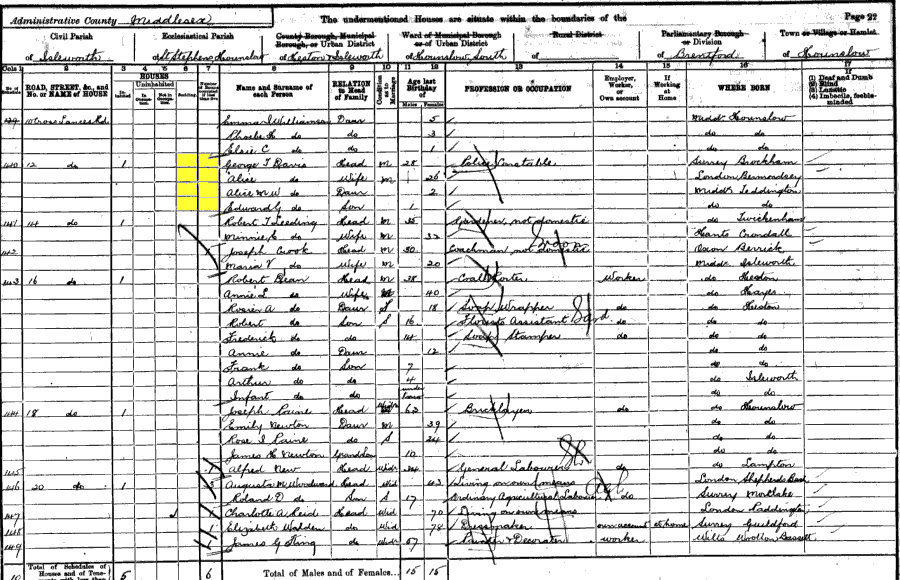 Administrative County Middlesex
The undermentioned Houses are situate within the boundaries of the
Page 22
Civil Parish
of Isleworth
Ecclesiastical Parish
of St Stephen Hounslow
County Borough, Municipal Borough, or Urban District
of Heston Isleworth
Ward of Municipal Borough or of Urban District
of Hounslow South
Rural District
of
Parliamentary Borough or Division
of Brentford
Town or Village or Hamlet
of Hounslow
Cols 1 2 3 4 5 6 7 8 9 10 11 12 13 14 15 16 17
No. of Schedule
ROAD, STREET, &c., and No. or NAME of HOUSE
HOUSES
Uninhabited
Name and Surname of each Person
RELATION to Head of Family
Age last Birthday of
Males Females
PROFESSION OR OCCUPATION
Employer, Worker, or Own account
If Working at Home
WHERE BORN
If
(1) Deaf and Dumb
(2) Blind
(3) Lunatic
(4) Imbecile, feeble-minded
Emma Williamson Daur 5 Middx Hounslow
Phoebe do 3 do do
Elsie C do do 1 do do
140 12 do 1 George T Davis Head M 28 Police Constable Surrey Brockham
Alice do Wife M 26 London Bermondsey
Alice M W do Daur 2 Middx Teddington
Edward G do Son 1 do do
141 14 do 1 Robert T Head M 35 Gardener, not domestic do Twickenham
Minnie do Wife M 32 Hants Crondall
142 Joseph Cook Head M 30 Coachman not domestic Oxon Berrick
Maria V do Wife M 20 Middx Isleworth
143 16 do 1 Robert Head M 38 Coal Porter Worker do Heston
Annie L do Wife 40 do Hayes
A do Daur S 18 Soap Wrapper do do Heston
Robert do Son S 16 Florists Assistant do do do
Frederick do do 14 Soap Stamper do do do
Annie do Daur 12 do do
Frank do Son 7 do do
Arthur do do 4 do Isleworth
Infant do do under do do
144 18 do 1 Joseph Paine Head 62 Bricklayer do do Hounslow
Emily Newton Daur M 39 do do
Rose I Paine do S 24 do do
James H Newton Grandson 10 do do
145 1 Alfred New Head General Labourer do do Lampton
146 20 do 1 3 Augusta M Woodward Head Wid 43 Living on own means London Shepherds Bush
Roland D do Son S 17 Ordinary Agricultural Labourer do Surrey Mortlake
147 1 Charlotte A Reid Head Wid 70 Living on own means London Paddington
148 1 Elizabeth Walden do Wid 74 Dressmaker own account at home Surrey Guildford
149 1 James G King do Widr 57 Painter & Decorator worker Wilts Wootton Bassett
10 Total of Schedules of Houses and of Tenements with less than 5 6 Total of Males and of Females... 15 15